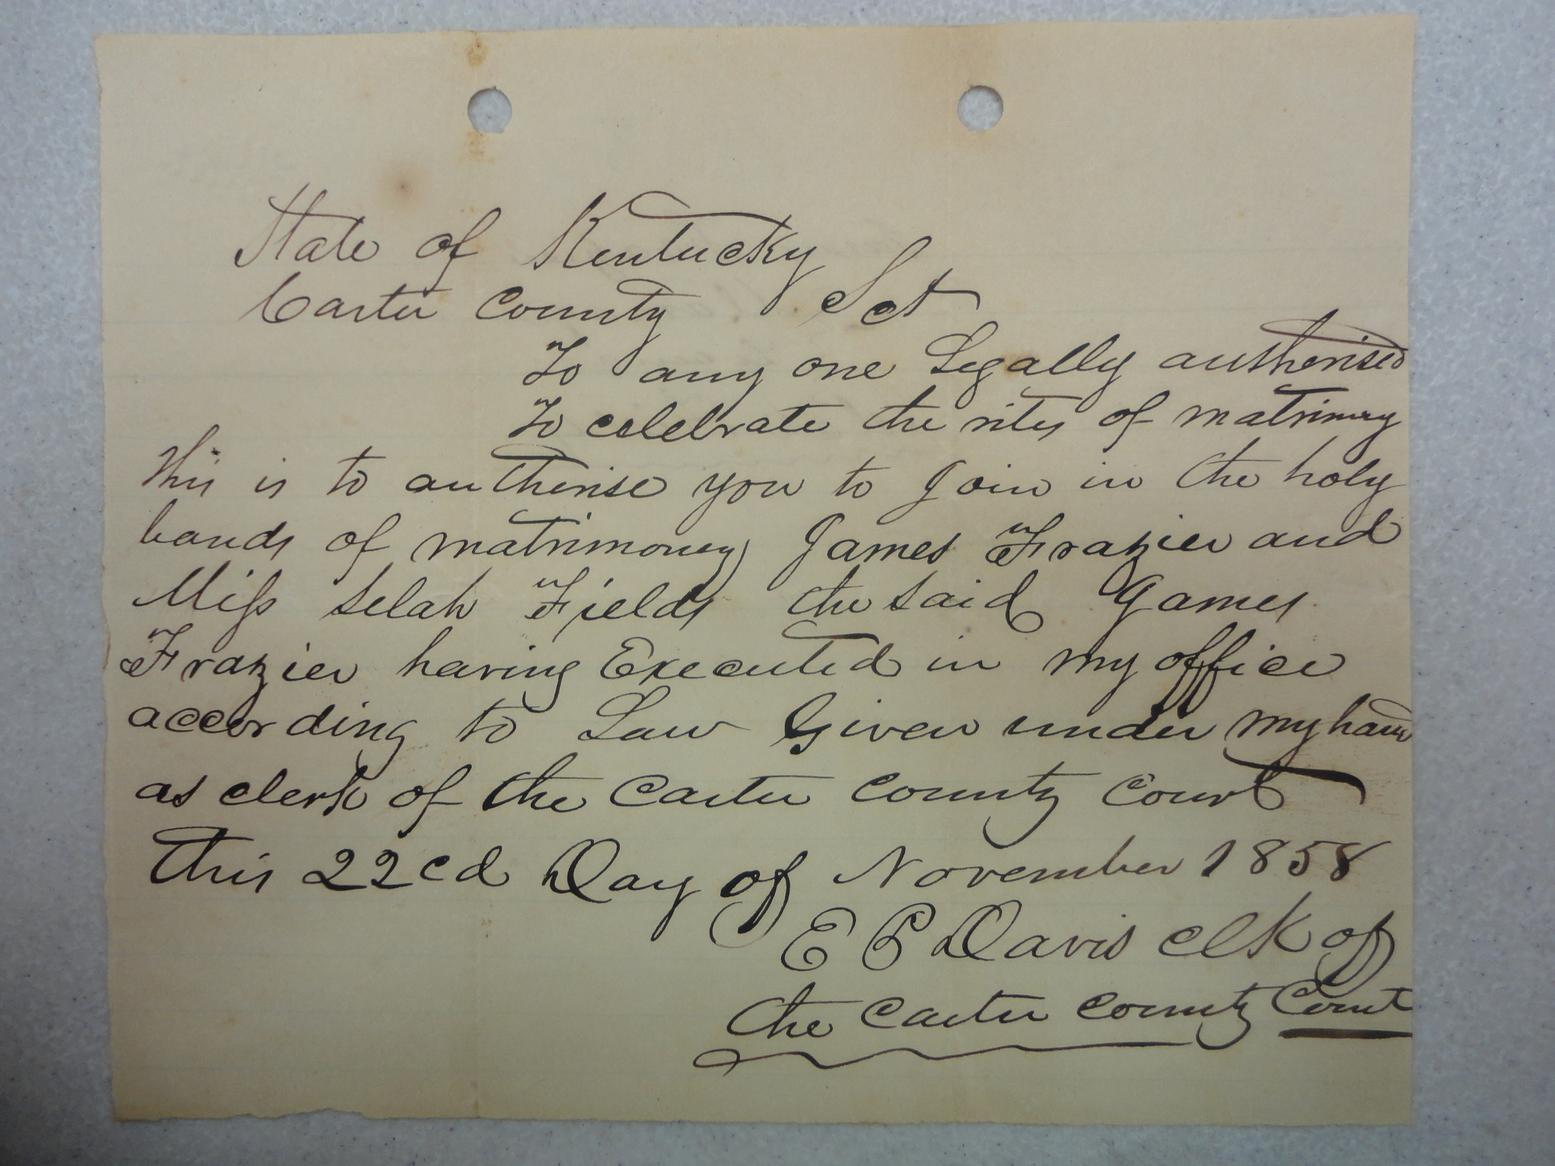 State of Kentucky
Carter County Sct
To any one Legally authorised
To celebrate the rites of matrimony
this is to authorise you to Join in the holy
bands of matrimoney James Frazier and
Miss Selah Fields the said James
Frazier having Executed in my office
according to Law Given under my hand
as clerk of the Carter County Court
this 22cd Day of November 1858
E P Davis clk of
the Carter County Court